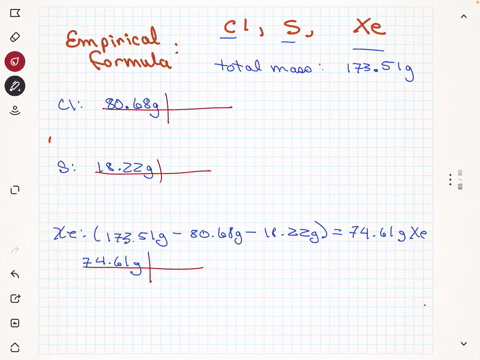 Empirical Formula:
Cl, S, Xe
total mass: 173.51g
Cl: 80.68g
S: 18.22g
Xe: (173.51g - 80.68g - 18.22g) = 74.61g Xe
74.61g